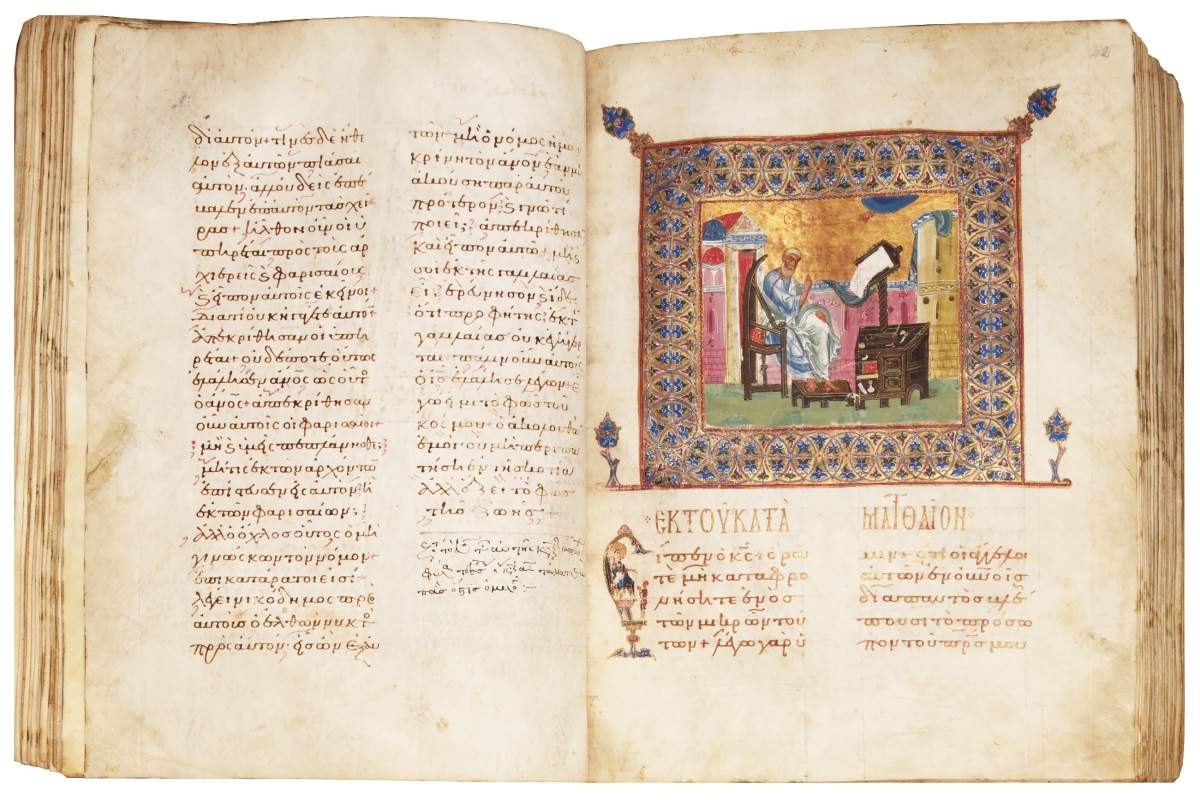 δι αὐτόν· τινὲς δὲ ἤθε
λον ἐξ αὐτῶν πιάσαι
αὐτόν· ἀλλ οὐδεὶς ἐπέ
βαλεν ἐπ αὐτὸν τὰς χεῖ
ρας + ἦλθον οὖν οἱ ὑ
πηρέται πρὸς τοὺς ἀρ
χιερεῖς ϗ φαρισαίους
ϗ εἶπον αὐτοῖς ἐκεῖνοι
διατί οὐκ ἠγάγετε αὐτό
ἀπεκρίθησαν οἱ ὑπη
ρέται + οὐδέποτε οὕτως
ἐλάλησεν ἄνος ὡς οὗτο
ὁ ἄνος + ἀπεκρίθησαν
οὖν αὐτοῖς οἱ φαρισαῖοι
μὴ ϗ ὑμεῖς πεπλάνησθε;
μή τις ἐκ τῶν ἀρχόντων
ἐπίστευσεν εἰς αὐτόν; ἢ
ἐκ τῶν φαρισαίων;
ἀλλ ὁ ὄχλος οὗτος ὁ μὴ
γινώσκων τὸν νόμον +
ἐπικατάρατοί εἰσι
λέγει νικόδημος πρὸ
αὐτοὺς ὁ ἐλθὼν νυκτ
πρὸς αὐτόν· εἷς ὢν ἐξ αὐ
τῶν· μὴ ὁ νόμος ἡμῶ
κρίνει τὸν ἄνον ἐὰν μὴ
ἀκούσῃ παρ αὐτοῦ
πρότερον; ϗ γνῷ τί
ποιεῖ; ἀπεκρίθησα
καὶ εἶπον αὐτῷ· μὴ ϗ
σὺ ἐκ τῆς γαλιλαίας
εἶ; ἐρεύνησον ϗ ἴδε
ὅτι προφήτης ἐκ τ
γαλιλαίας οὐκ ἐγήγερ
ται· πάλιν οὖν αὐτοῖς
ὁ ις ἐλάλησε λέγων + ἐ
γώ εἰμι τὸ φῶς τοῦ
κόσμου· ὁ ἀκολουθῶ
ἐμοί· οὐ μὴ περιπα
τήσῃ ἐν τῇ σκοτίᾳ
ἀλλ ἕξει τὸ φῶς
τῆς ζωῆς +
ΕΚ ΤΟΥ ΚΑΤΑ ΜΑΤΘΑΙΟΝ
εἶπεν ὁ κς· ὁρᾶ
τε μὴ καταφρο
νήσητε ἑνὸς
τῶν μικρῶν τού
των + λέγω γὰρ ὑ
μῖν + ὅτι οἱ ἄγγελοι
αὐτῶν ἐν οὐνοις
διαπαντὸς βλέ
πουσι τὸ πρόσω
πον τοῦ πρς μου